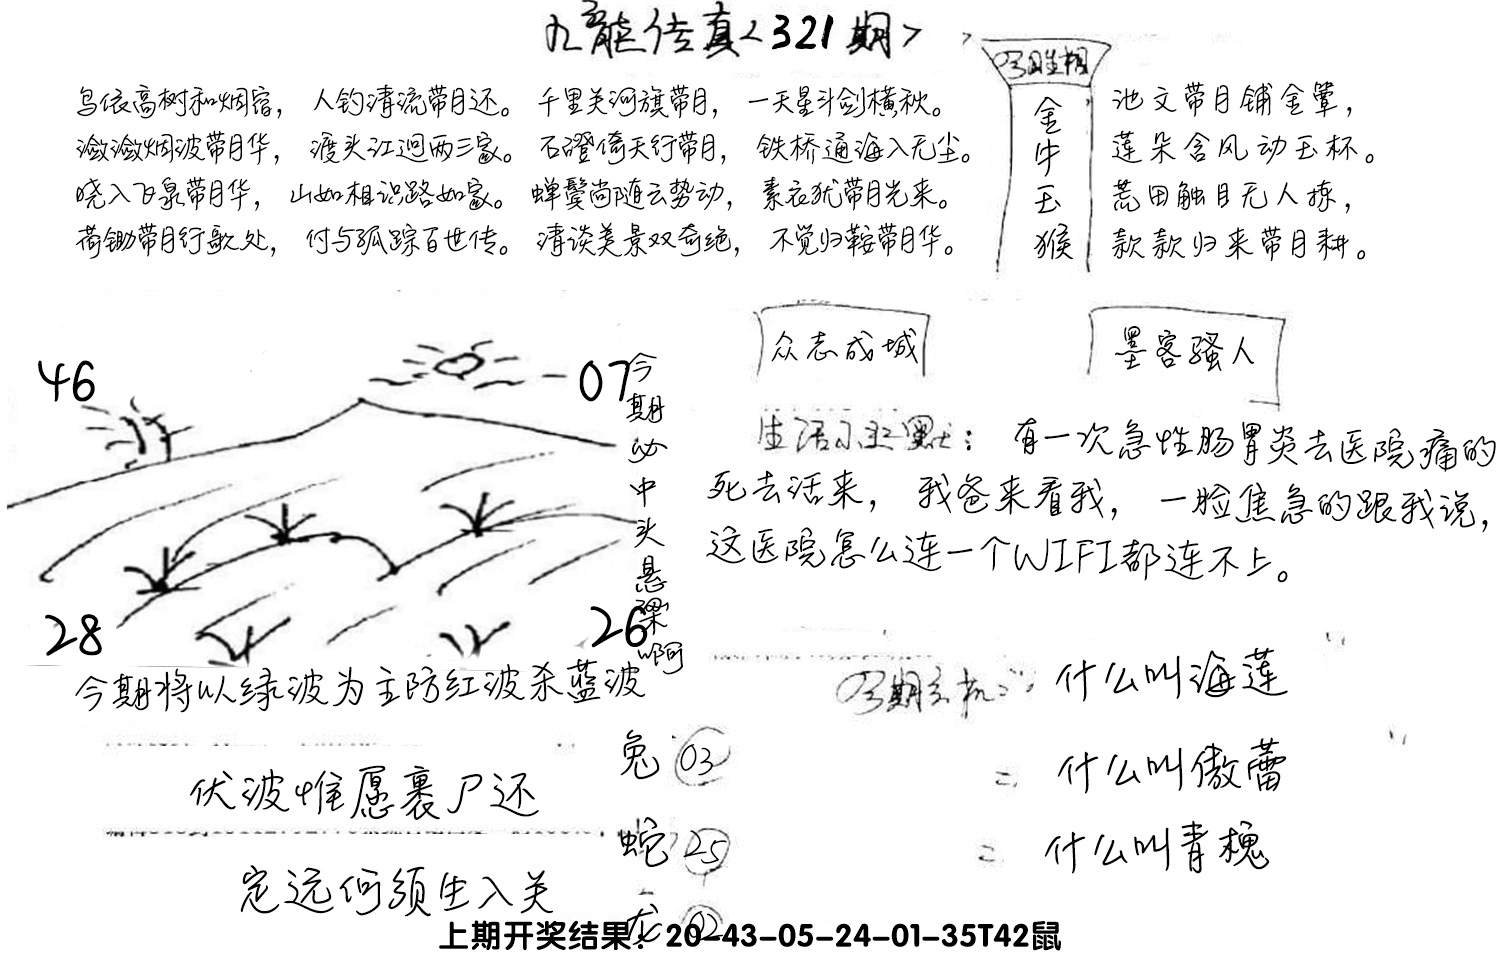 九龍传真<321期>
今日生相
金牛玉猴
鸟依高树和烟宿， 人钓清流带月还。 千里关河旗带月， 一天星斗剑横秋。
潋潋烟波带月华， 渡头江迥两三家。 石磴倚天行带月， 铁桥通海入无尘。
晓入飞泉带月华， 山如相识路如家。 蝉鬓尚随云势动， 素衣犹带月光来。
荷锄带月行歌处， 付与孤踪百世传。 清谈美景双奇绝， 不觉归鞍带月华。
池文带月铺金簟，
莲朵含风动玉杯。
荒田触目无人拣，
款款归来带月耕。
46
07
28
26
今期必中头悬梁啊
今期将以绿波为主防红波杀蓝波
众志成城
墨客骚人
生活小幽默： 有一次急性肠胃炎去医院痛的
死去活来， 我爸来看我， 一脸焦急的跟我说，
这医院怎么连一个WIFI都连不上。
伏波惟愿裹尸还
定远何须生入关
兔 03
蛇 25
龙 02
今期玄机： 什么叫海莲
= 什么叫傲蕾
= 什么叫青槐
上期开奖结果：20-43-05-24-01-35T42鼠